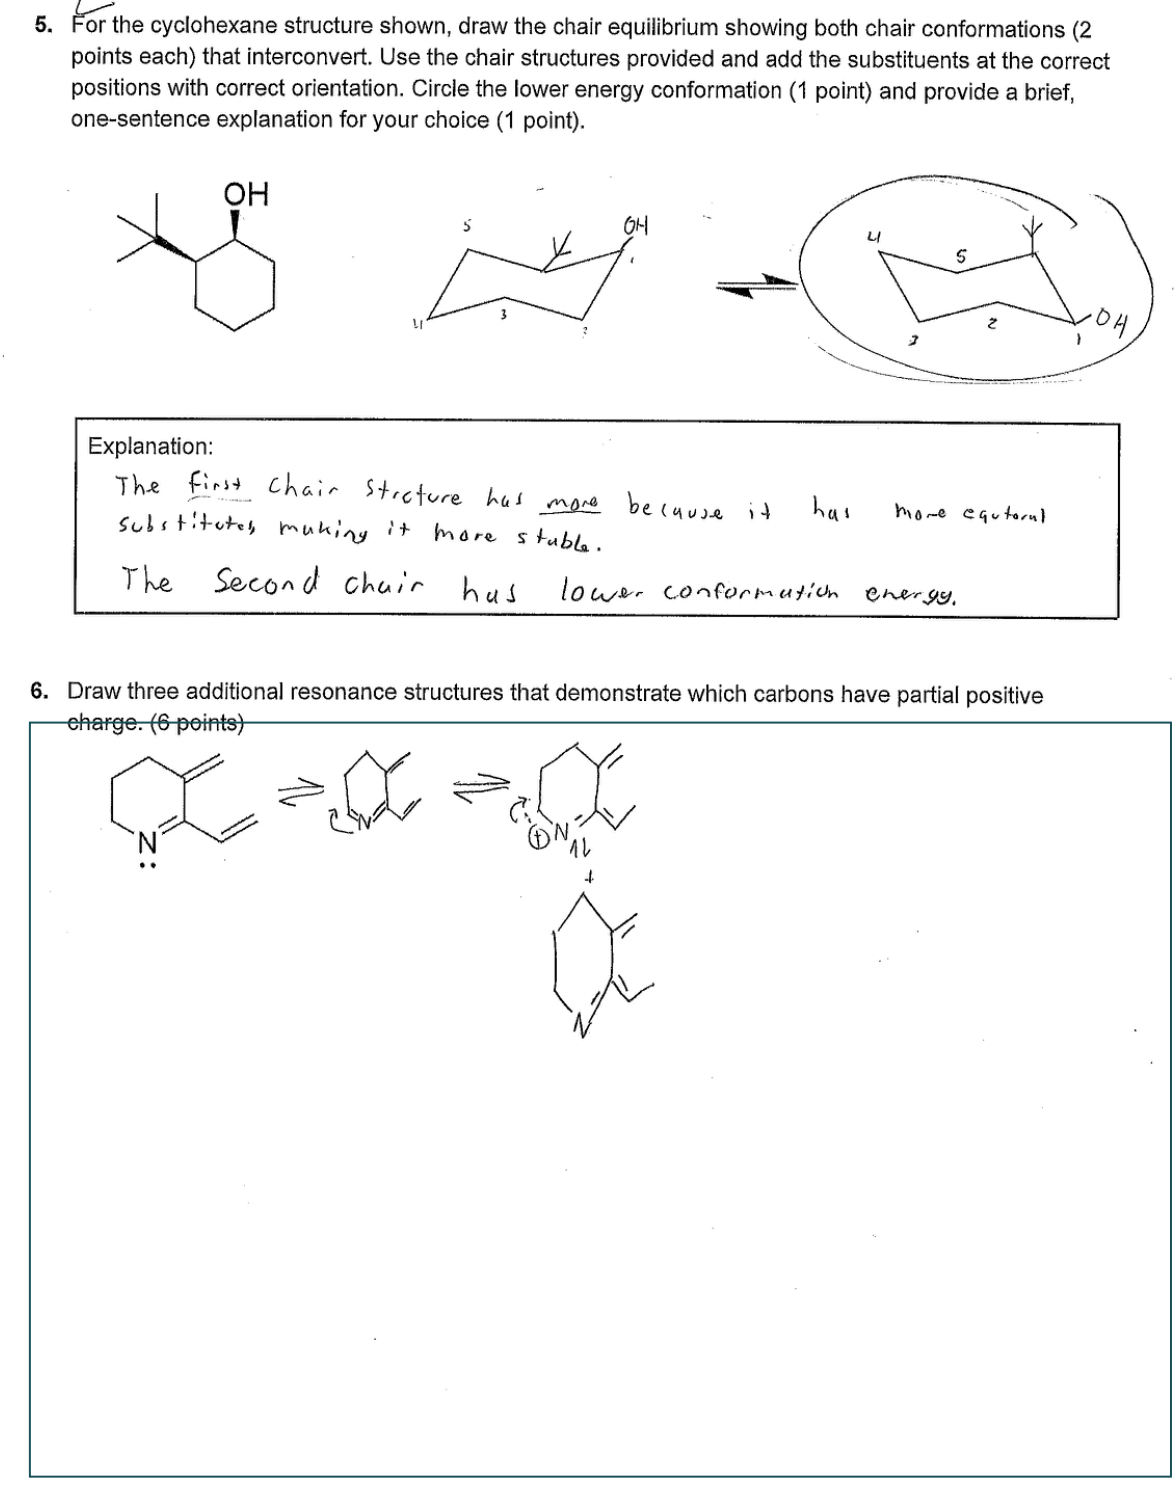 5. For the cyclohexane structure shown, draw the chair equilibrium showing both chair conformations (2
points each) that interconvert. Use the chair structures provided and add the substituents at the correct
positions with correct orientation. Circle the lower energy conformation (1 point) and provide a brief,
one-sentence explanation for your choice (1 point).
OH
5
OH
1
4
3
2
4
5
OH
3
2
1
Explanation:
The first chair strcture has more because it has more equtoral
substitutes making it more stable.
The Second chair has lower conformation energy.
6. Draw three additional resonance structures that demonstrate which carbons have partial positive
charge. (6 points)
N
N
+ N
+
N